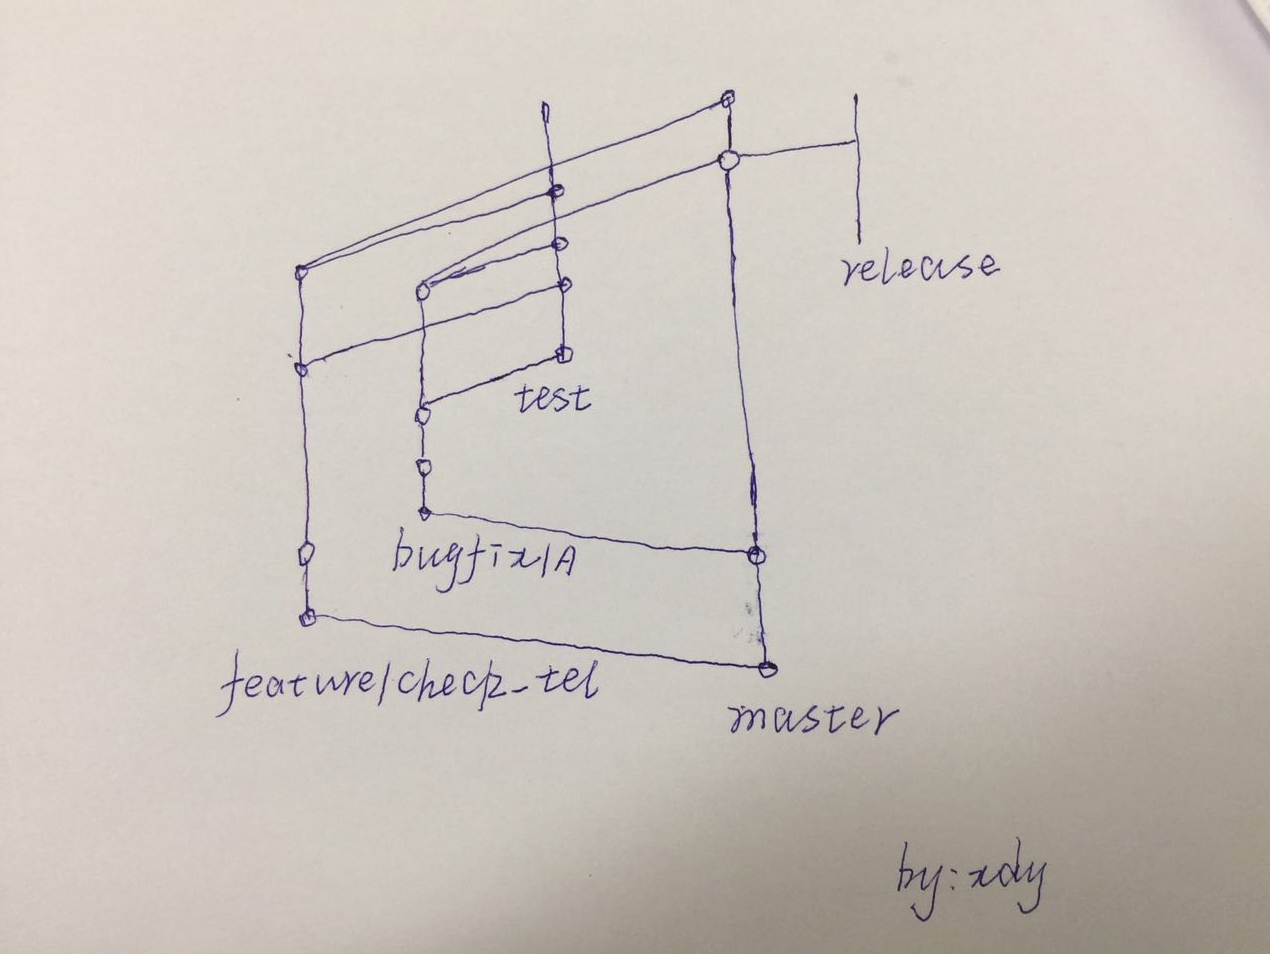 release
test
bugfix/A
feature/check_tel
master
by: xdy